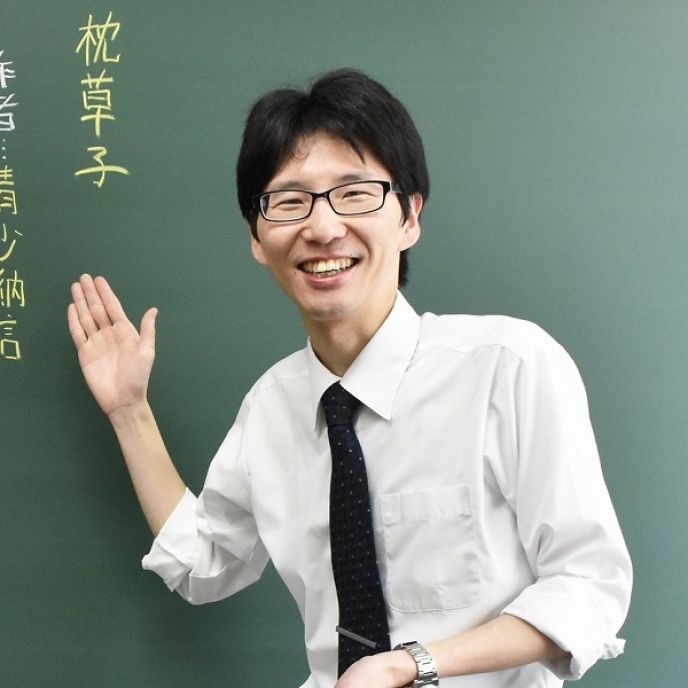 枕草子
作者…清少納言